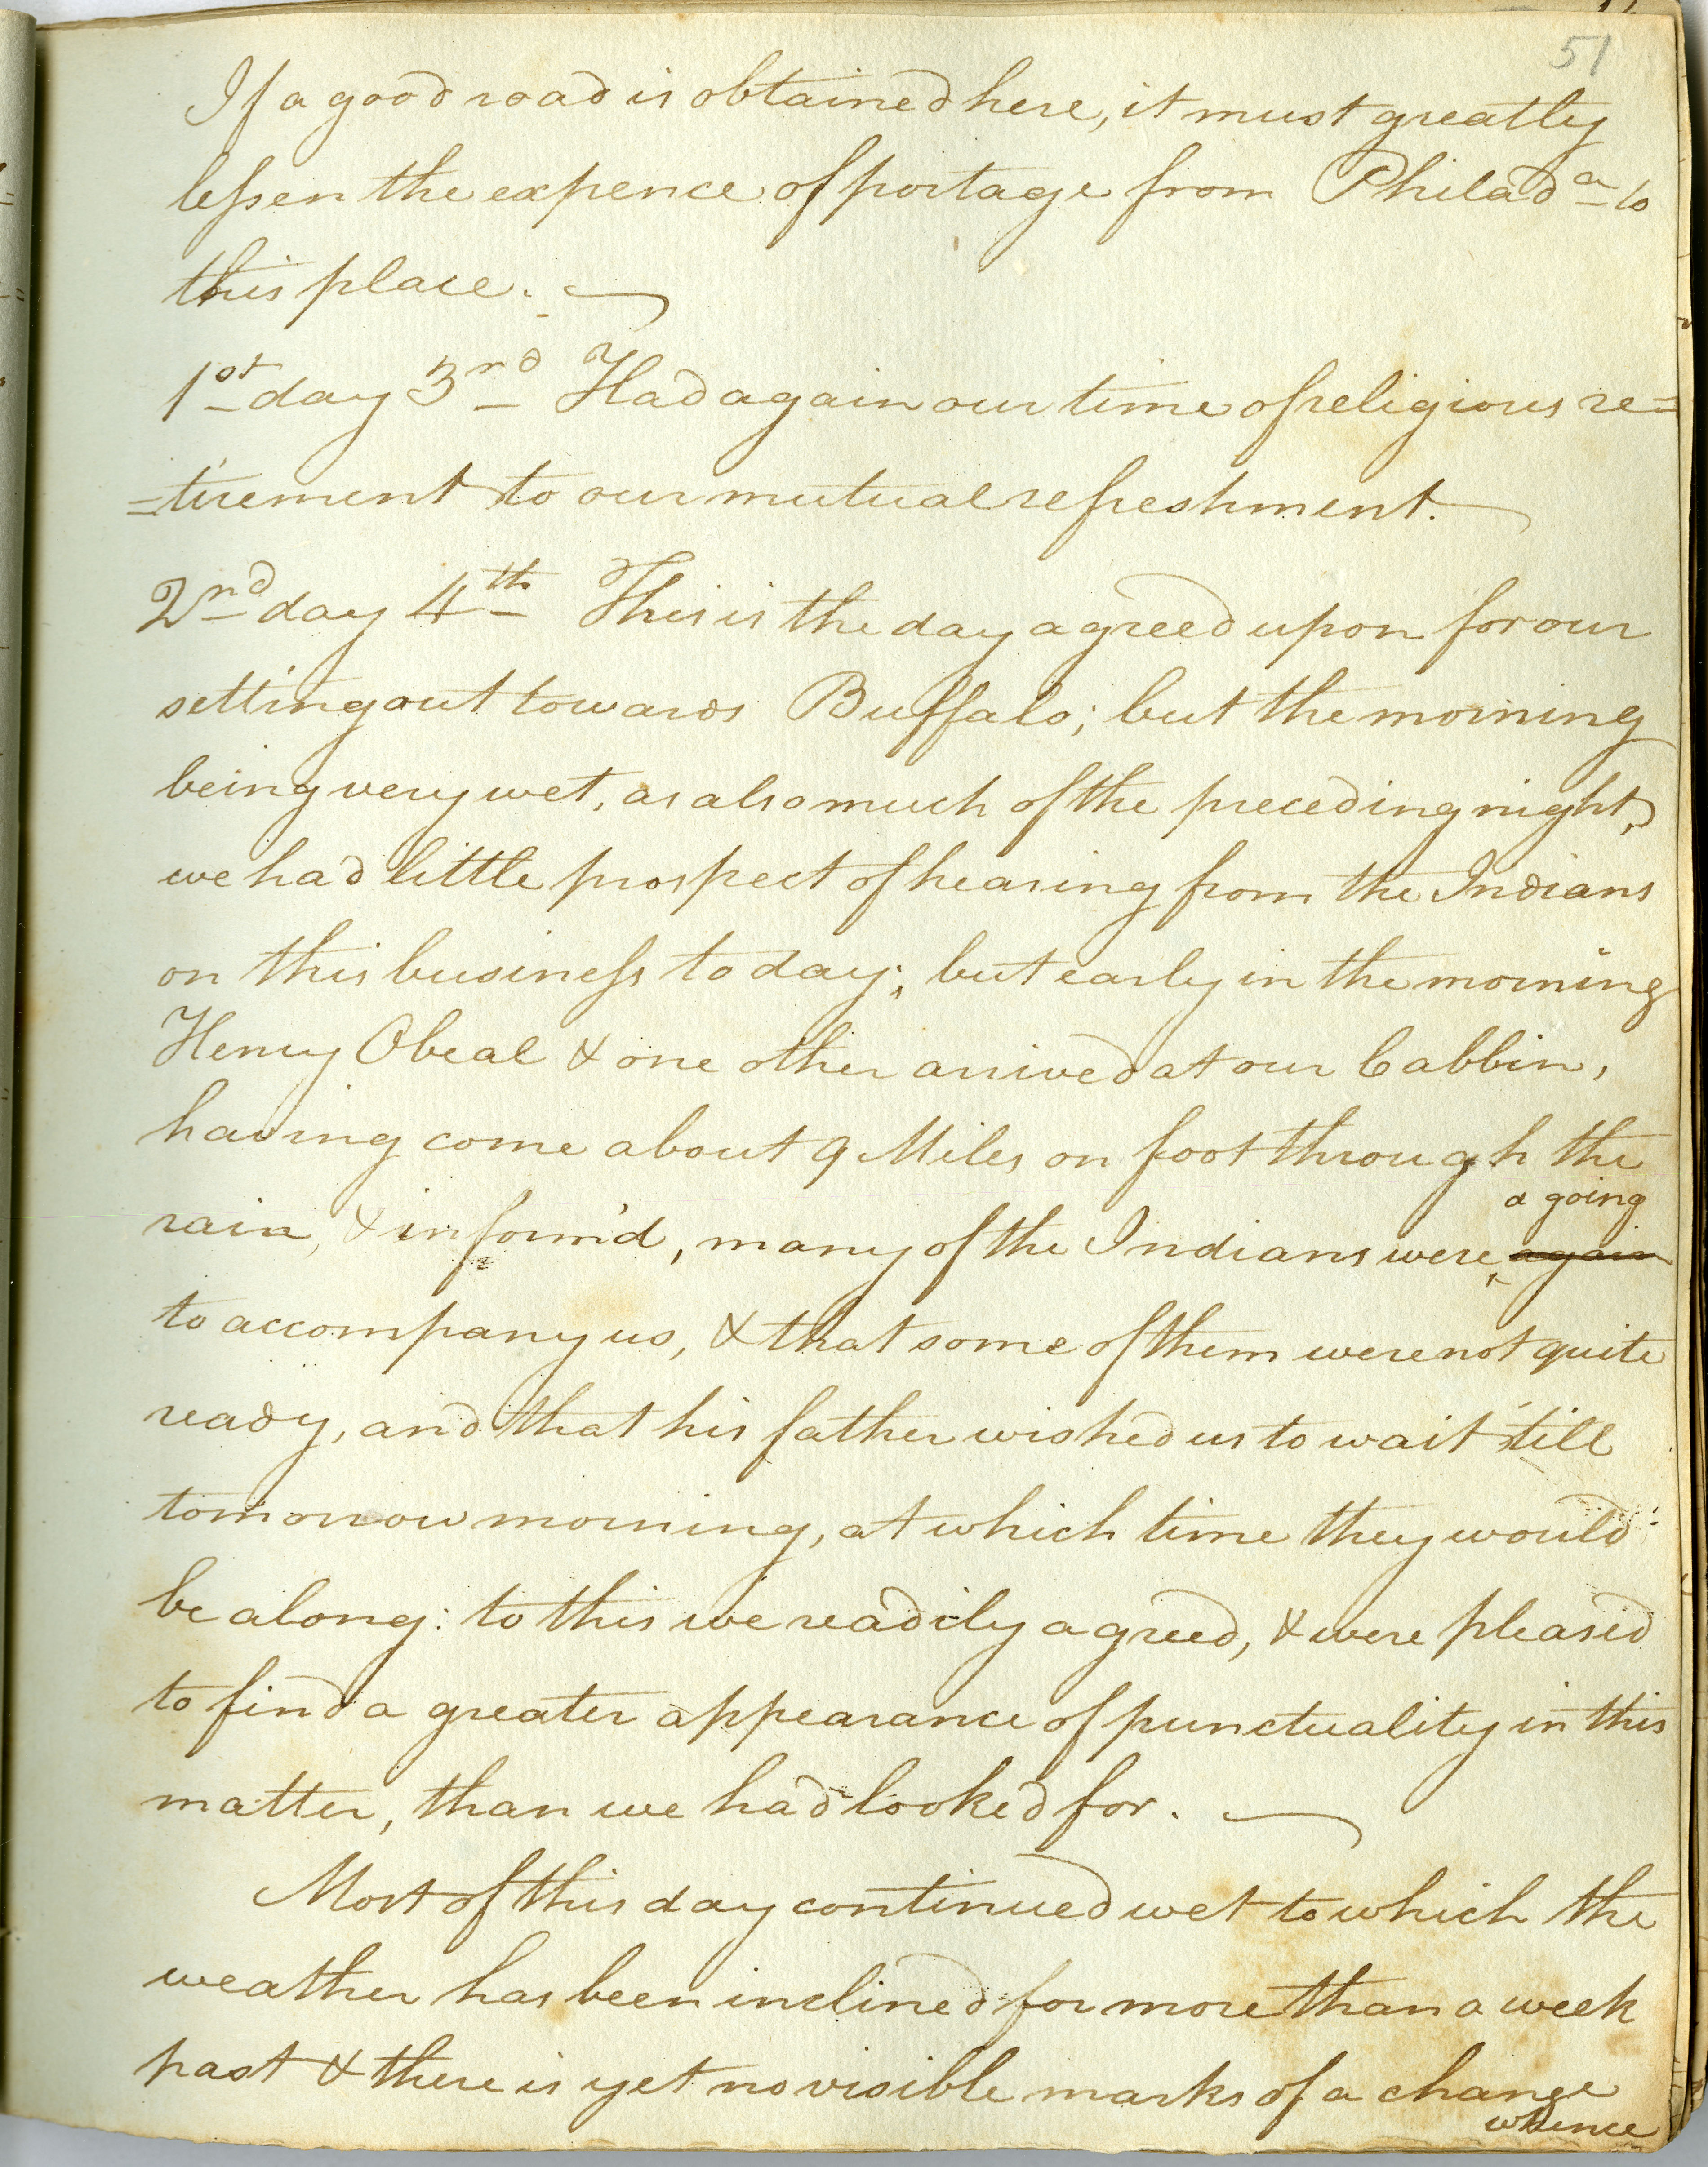 51
If a good road is obtained here, it must greatly
lessen the expence of portage from Philad.a to
this place.
1st day 3rd Had again our time of religious re=
=tirement to our mutual refreshment.
2nd day 4th This is the day agreed upon for our
setting out towards Buffalo; but the morning
being very wet, as also much of the preceding night,
we had little prospect of hearing from the Indians
on this business to day; but early in the morning
Henry Obeal & one other arrived at our Cabbin,
having come about 9 Miles on foot through the
a going
rain, & inform'd, many of the Indians were again
to accompany us, & that some of them were not quite
ready, and that his father wished us to wait 'till
tomorrow morning, at which time they would
be along: to this we readily agreed, & were pleased
to find a greater appearance of punctuality in this
matter, than we had looked for.
Most of this day continued wet to which the
weather has been inclined for more than a week
past & there is yet no visible marks of a change
whence